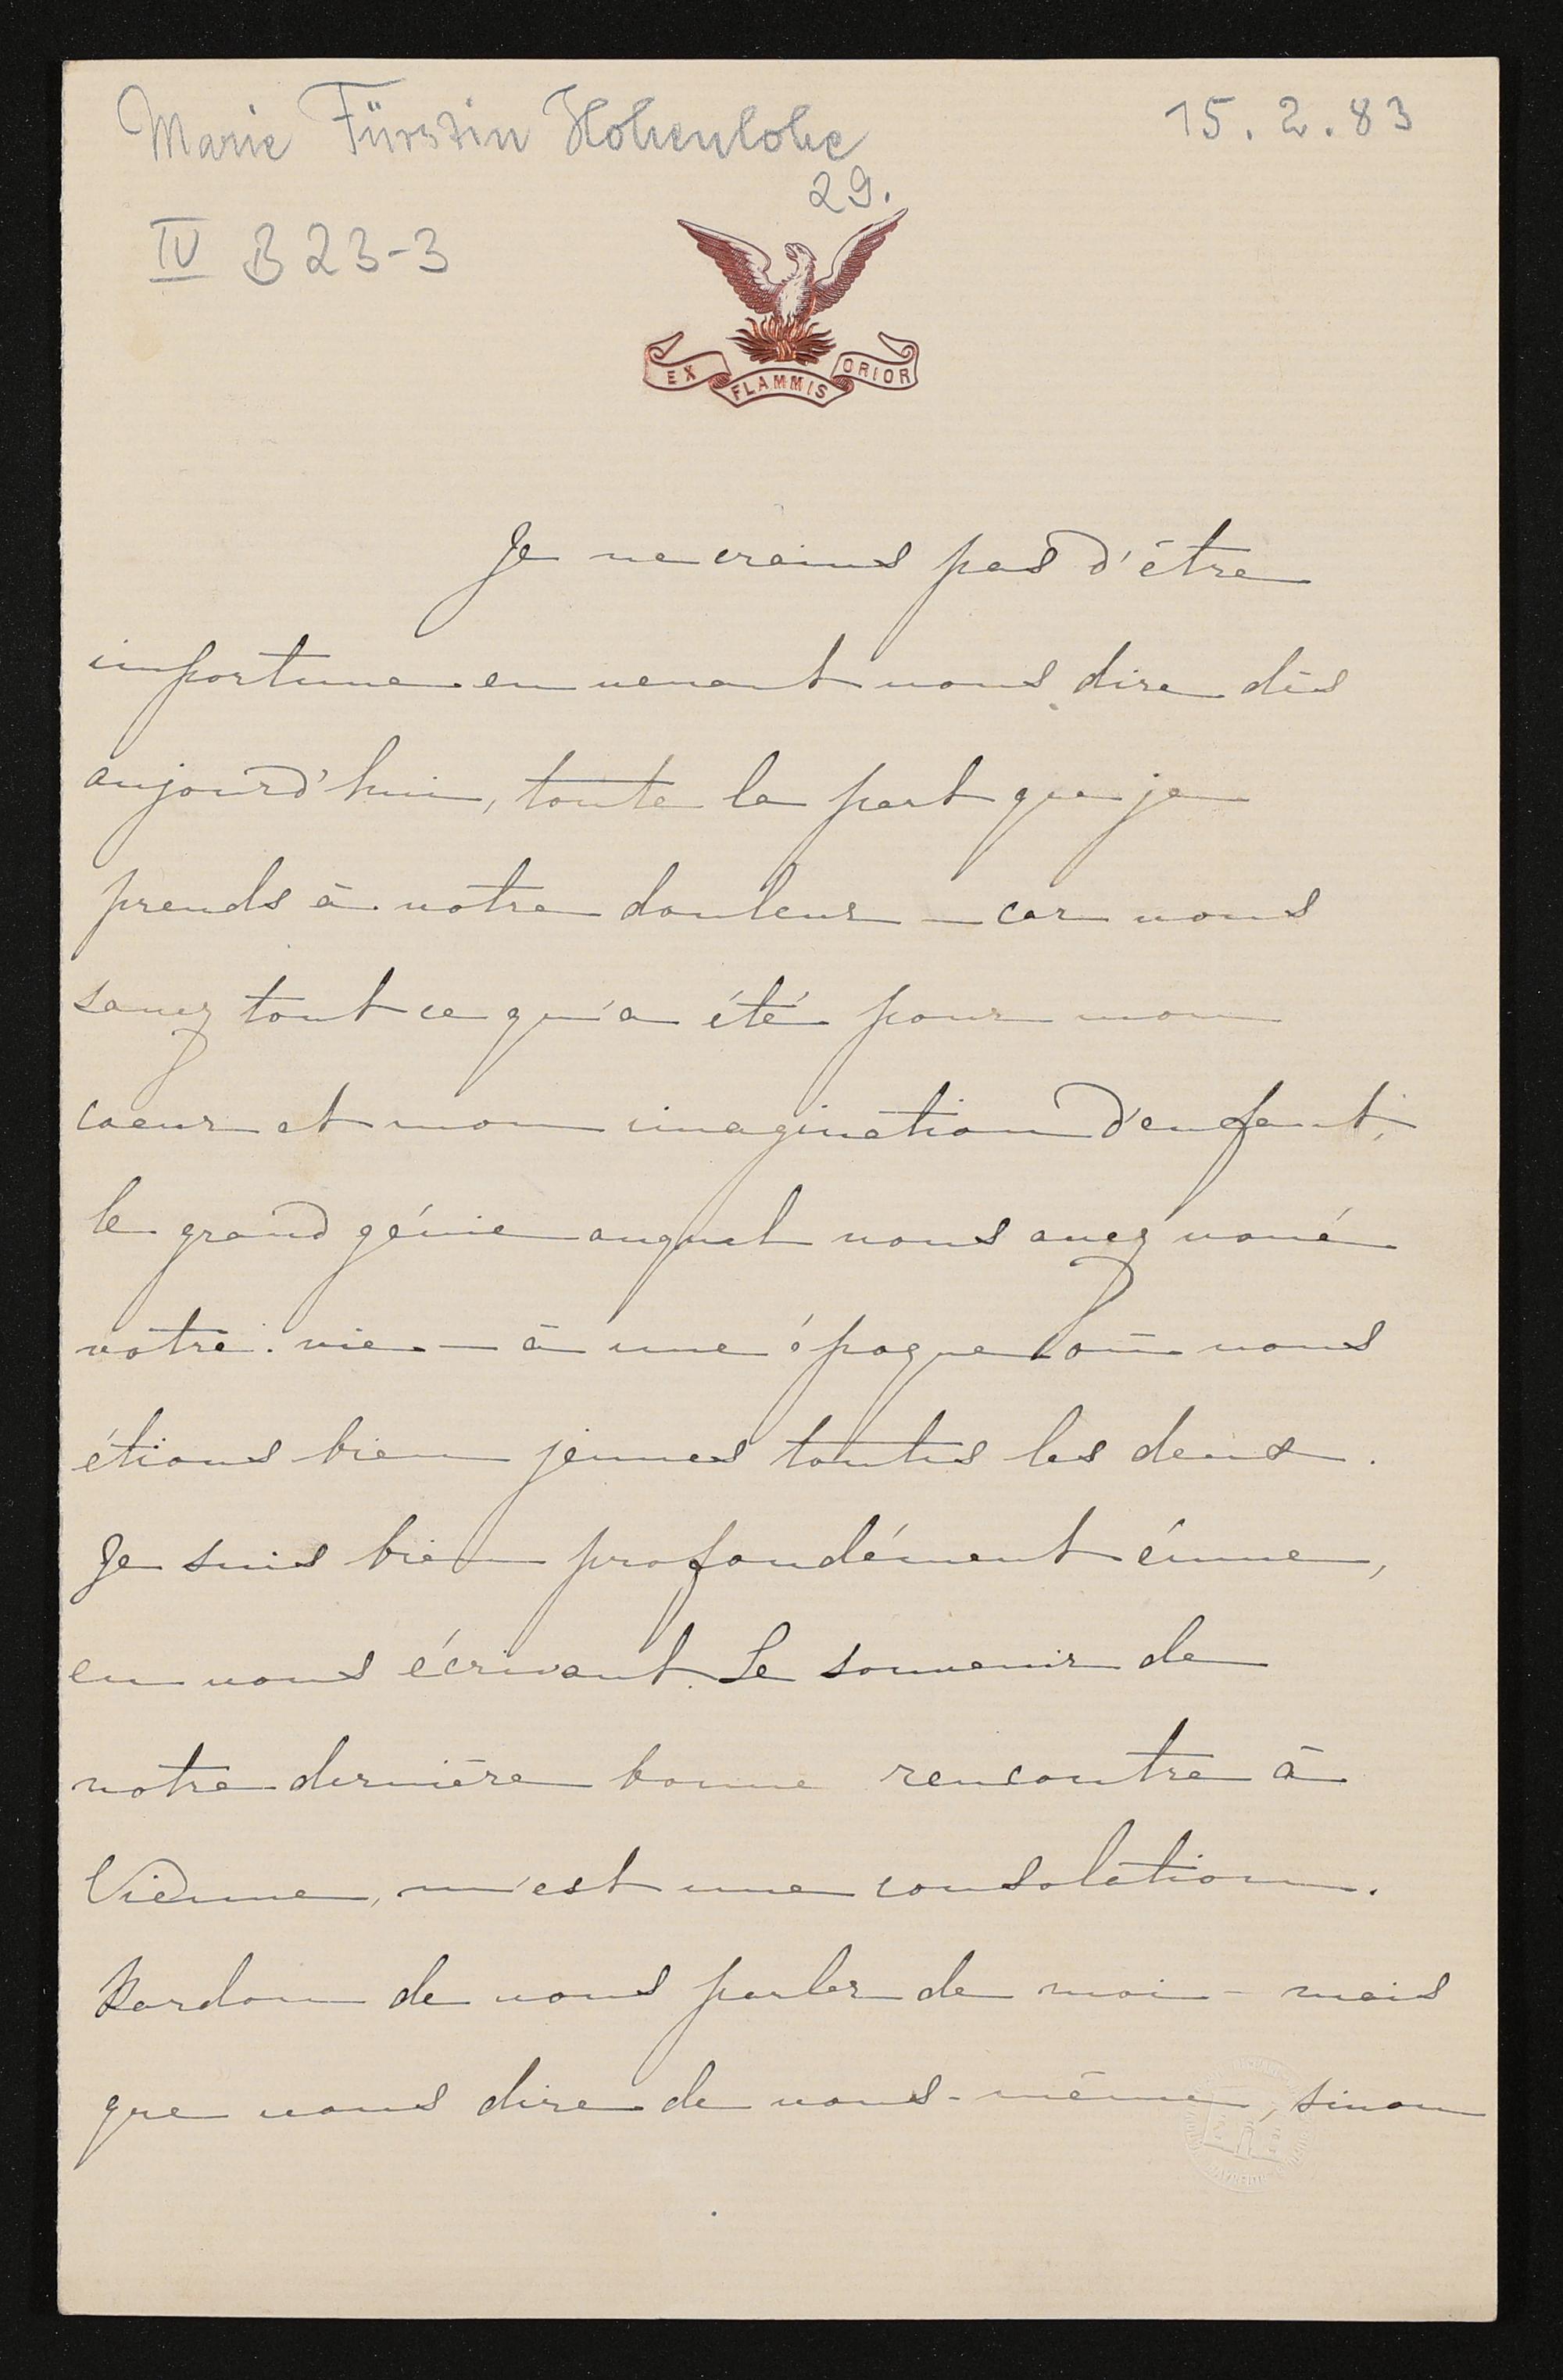 Marie Fürstin Hohenlohe
15.2.83
29.
IV B 23-3
EX FLAMMIS ORIOR
Je ne crains pas d'être
importune en venant vous dire dès
aujourd'hui, toute la part que je
prends à votre douleur — car vous
savez tout ce qu'a été pour mon
coeur et mon imagination d'enfant,
le grand génie auquel vous avez voué
votre vie — à une époque où nous
étions bien jeunes toutes les deux.
Je suis bien profondément émue,
en vous écrivant. Le souvenir de
notre dernière bonne rencontre à
Vienne, m'est une consolation.
Pardon de vous parler de moi - mais
que vous dire de vous-même, sinon